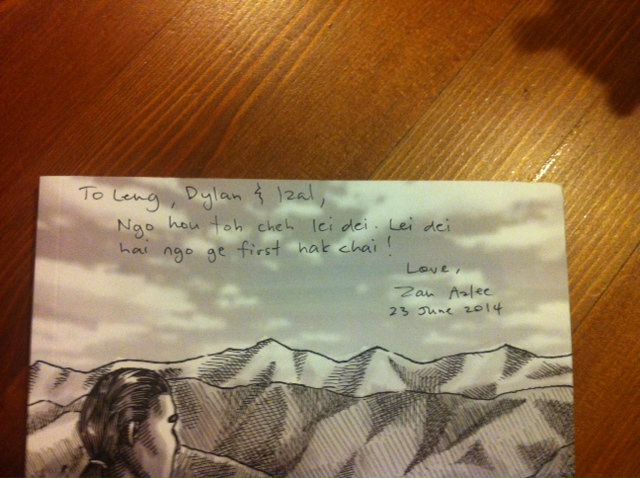 To Leng, Dylan & Izal,
Ngo hou toh cheh lei dei. Lei dei
hai ngo ge first hak chai!
Love,
Zan Azlee
23 June 2014